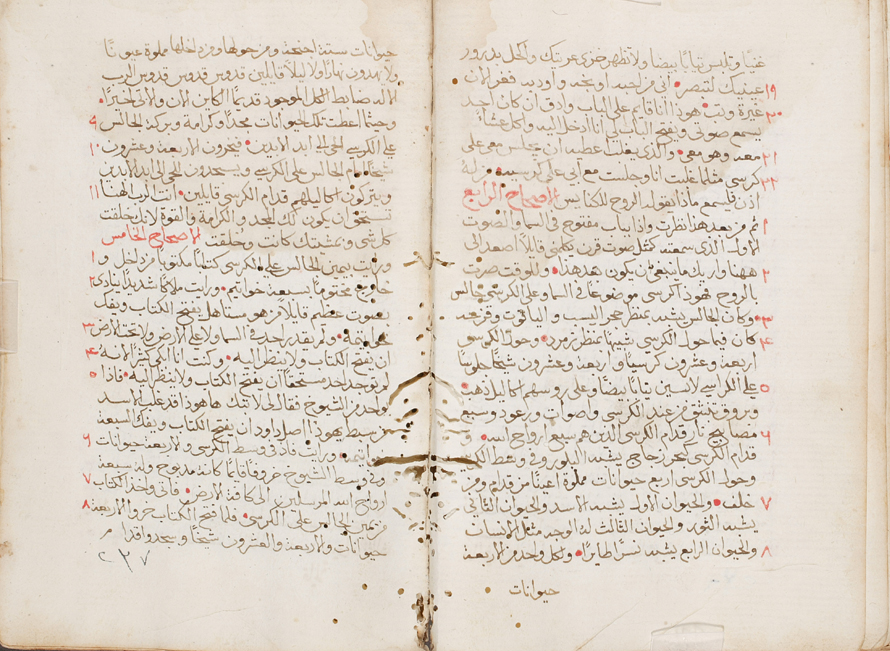 غنيًا وتلبس ثيابًا بيضا ولا تظهر خزى عريتك واكحل بدرور
١٩ عينيك لتبصر انى من احبه اوبخه واودبه فغر الان
٢٠ غيرة وتب هوذا انا قايم على الباب وادق ان كان احد
يسمع صوتى ويفتح الباب لى انا ادخل اليه واكل عشاء
٢١ معه وهو معى والذى يغلب اعطيه ان يجلس معى على
كرسى مثلما غلبت انا وجلست مع ابى على كرسيه من له
٢٢ اذن فليسمع ماذا يقوله الروح للكنايس الاصحاح الرابع
١ ثم من بعد هذا نظرت واذا بباب مفتوح فى السما والصوت
الاول الذى سمعته كمثل صوت قرن يكلمنى قايلًا اصعد الى
٢ ههنا واريك ما ينبغى ان يكون بعد هذا وللوقت صرت
بالروح فهوذا كرسى موضوعًا فى السما وعلى الكرسى جالس
٣ وكان الجالس يشبه بمنظر حجر اليسب والياقوت وقزعه
٤ كان فيما حول الكرسى شبهًا بمنظر زمرد وحول الكرسى
اربعة وعشرون كرسيًا واربعة وعشرون شيخًا جلوسًا
٥ على الكراسى لابسين ثيابًا بيضًا وعلى روسهم اكاليل ذهب
وبروق تنبثق من عند الكرسى واصوات ورعود وسبع
٦ مصابيح نار قدام الكرسى الذين هم سبع ارواح الله و
قدام الكرسى بحر زجاج يشبه البلور وفى وسط الكرسى
وحول الكرسى اربع حيوانات مملوة اعينًا من قدام ومن
٧ خلف والحيوان الاول يشبه الاسد والحيوان الثانى
يشبه الثور والحيوان الثالث له الوجه مثل الانسان
٨ والحيوان الرابع يشبه نسرًا طايرًا وكل واحد من الاربعة
حيوانات
حيوانات ستة اجنحة ومن حولها ومن داخلها مملوة عيونًا
ولا يهدون نهارًا ولا ليلًا قايلين قدوس قدوس قدوس الرب
الاله ضابط الكل الموجود قديمًا الكاين الان والاتى اخيرًا
٩ وحينما اعطت تلك الحيوانات مجدًا وكرامة وبركة للجالس
١٠ على الكرسى الحى الى ابد الابدين فيخرون الاربعة وعشرون
شيخًا امام الجالس على الكرسى ويسجدون للحى الى ابد الابدين
١١ ويتركون اكاليلهم قدام الكرسى قايلين انت الرب الهنا
تستحق ان يكون لك المجد والكرامة والقوة لانك خلقت
كل شى وبمشيتك كانت وخلقت الاصحاح الخامس
١ ورايت بيمين الجالس على الكرسى كتابًا مكتوبًا من داخل و
٢ خارج مختومًا بسبعة خواتيم ورايت ملاكًا شديدًا ينادى
بصوت عظيم قايلًا من هو مستاهل يفتح الكتاب ويفك
٣ خواتيمه ولم يقدر احد فى السما ولا على الارض ولا تحت الارض
٤ ان يفتح الكتاب ولا ينظر اليه وكنت انا ابكى كثيرًا لانه
٥ لم يوجد احد مستحقًا ان يفتح الكتاب ولا ينظر اليه فاذا
واحد من الشيوخ فقال لى لا تبك ها هوذا قد غلب الاسد
من سبط يهوذا اصل داود ان يفتح الكتاب ويفك السبعة
٦ خواتيمه ورايت فاذا فى وسط الكرسى والاربعة حيوانات
وفى وسط الشيوخ خروفًا قايمًا كانه مذبوح وله سبعة
٧ ارواح الله المرسلين الى كافة الارض فاتى واخذ الكتاب
٨ من يمين الجالس على الكرسى فلما فتح الكتاب خروا الاربعة
حيوانات والاربعة والعشرون شيخًا وسجدوا قدام
٢٣٧